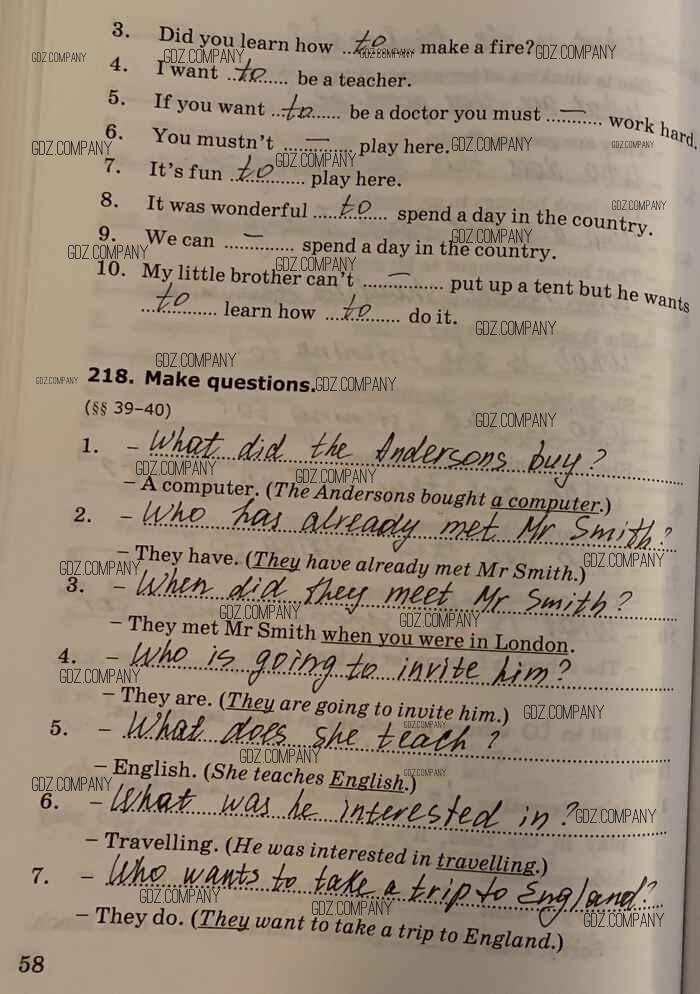 3. Did you learn how ..to.. make a fire?
4. I want ..to.. be a teacher.
5. If you want ..to.. be a doctor you must ..–.. work hard.
6. You mustn't ..–.. play here.
7. It's fun ..to.. play here.
8. It was wonderful ..to.. spend a day in the country.
9. We can ..–.. spend a day in the country.
10. My little brother can't ..–.. put up a tent but he wants
..to.. learn how ..to.. do it.
218. Make questions.
(§§ 39–40)
1. – What did the Andersons buy?
– A computer. (The Andersons bought a computer.)
2. – Who has already met Mr Smith?
– They have. (They have already met Mr Smith.)
3. – When did they meet Mr Smith?
– They met Mr Smith when you were in London.
4. – Who is going to invite him?
– They are. (They are going to invite him.)
5. – What does she teach?
– English. (She teaches English.)
6. – What was he interested in?
– Travelling. (He was interested in travelling.)
7. – Who wants to take a trip to England?
– They do. (They want to take a trip to England.)
58
GDZ.COMPANY